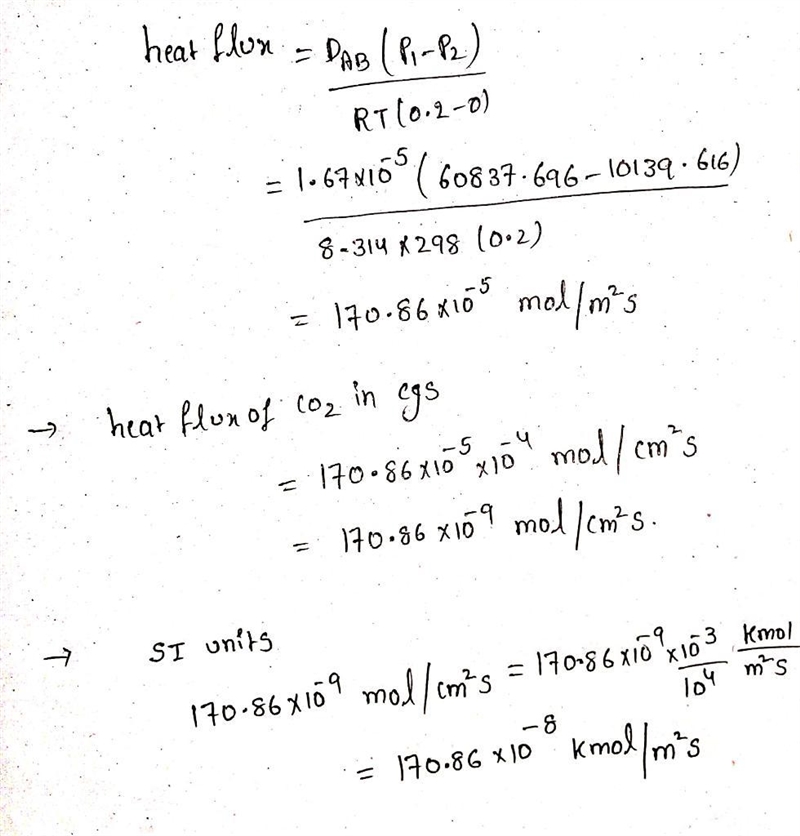 heat flux = DAB (P1-P2)
RT(0.2-0)
= 1.67×10^-5 (60837.696-10139.616)
8.314×298 (0.2)
= 170.86×10^-5 mol/m²s
→ heat flux of CO2 in cgs
= 170.86×10^-5 ×10^-4 mol/cm²s
= 170.86×10^-9 mol/cm²s.
→ SI units
170.86×10^-9 mol/cm²s = 170.86×10^-9 ×10^-3/10^4 Kmol/m²s
= 170.86×10^-8 kmol/m²s